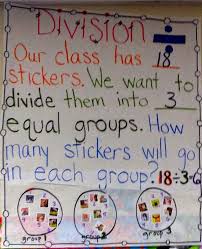 Division ÷
Our class has 18
stickers. We want to
divide them into 3
equal groups. How
many stickers will go
in each group? 18÷3=6
group 1 group 2 group 3